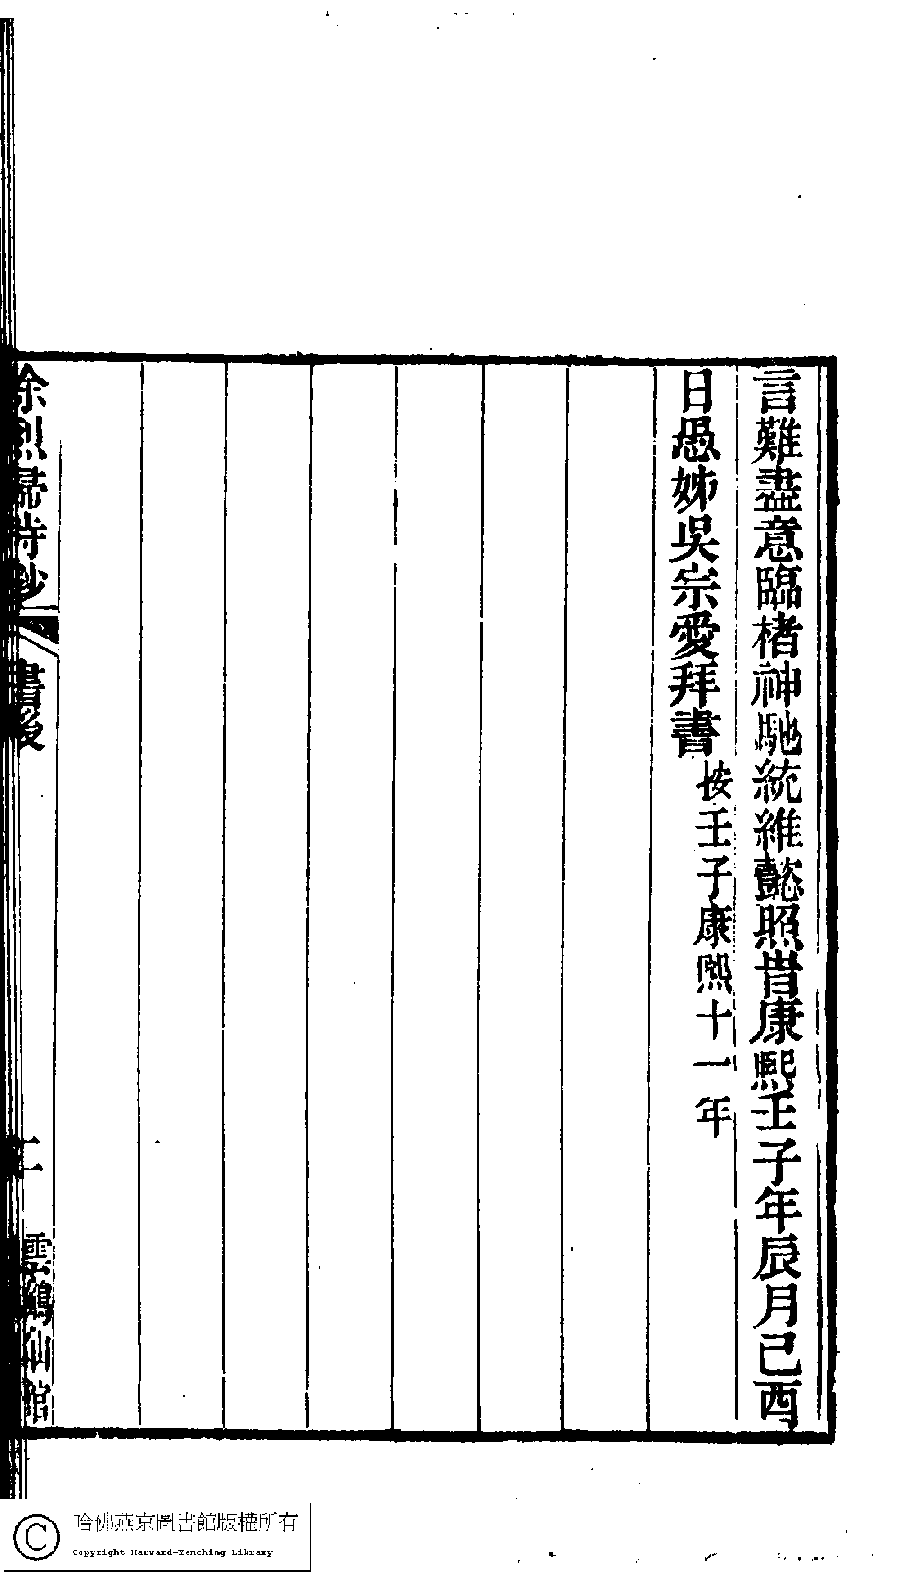 言難盡意臨楮神馳統維懿照旹康熙壬子年辰月己酉
日愚姊吳宗愛拜書按壬子康熙十一年
徐烈婦詩鈔 書後 二 雲鶴仙館
哈佛燕京圖書館版權所有
Copyright Harvard-Yenching Library